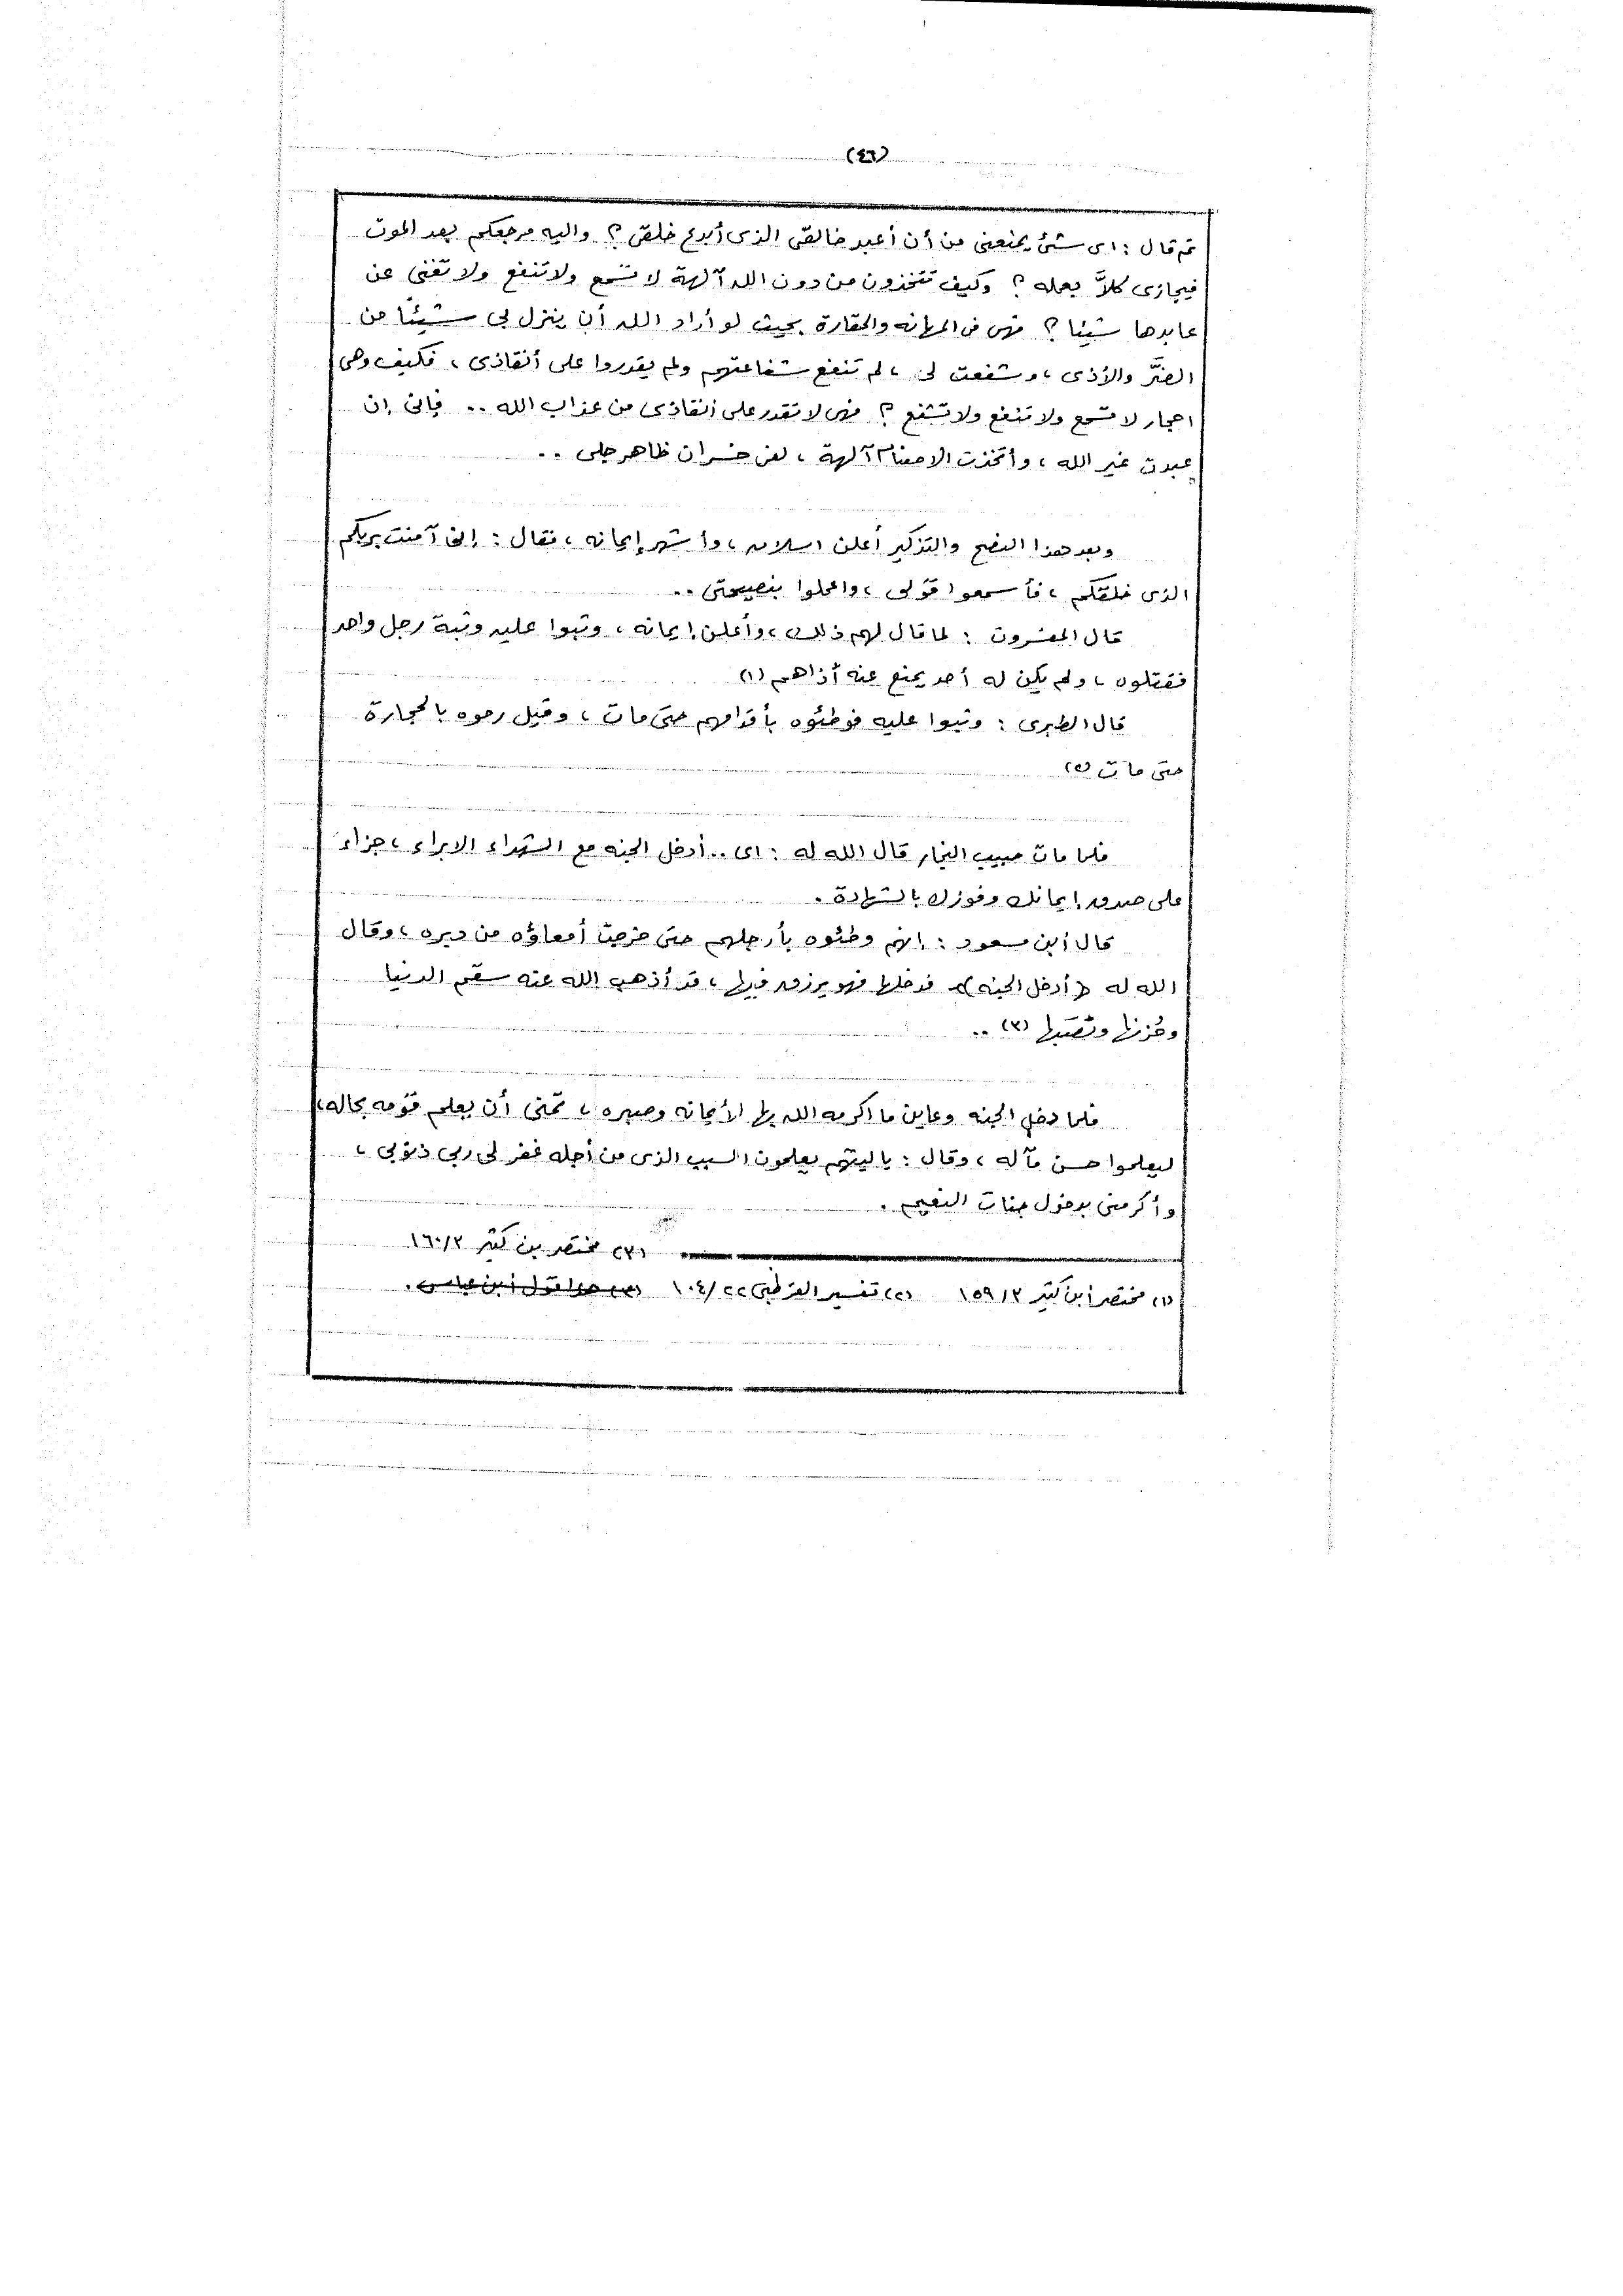 (٤٦)
ثم قال : اى شئ يمنعنى من أن أعبد خالقى الذى أبدع خلقى ؟ واليه مرجعكم بعد الموت
فيجازى كلاَّ بعمله ؟ وكيف تتخذون من دون الله آلهة لا تسمع ولا تنفع ولا تغنى عن
عابدها شيئا ؟ فهى فى المهانه والحقارة بحيث لو أراد الله أن ينزل بى شيئاً من
الضرَّ والأذى ، وشفعت لى ، لم تنفع شفاعتهم ولم يقدروا على أنقاذى ، فكيف وهى
احجار لا تسمع ولا تنفع ولا تشفع ؟ فهى لا تقدر على انقاذى من عذاب الله .. فإنى إن
عبدت غير الله ، وأتخذت الاصنام آلهة ، لفى خسران ظاهر جلى ..
وبعد هذا النصح والتذكير أعلن اسلامه ، وأشهر إيمانه ، فقال : إنى آمنت بربكم
الذى خلقكم ، فأسمعوا قولى ، واعملوا بنصيحتى ..
قال المفسرون : لما قال لهم ذلك ، وأعلن إيمانه ، وثبوا عليه وثبة رجل واحد
فقتلوه ، ولم يكن له أحد يمنع عنه أذاهم (١)
قال الطبرى : وثبوا عليه فوطئوه بأقدامهم حتى مات ، وقيل رموه بالحجارة
حتى مات (٢)
فلما مات حبيب النجار قال الله له : اى .. أدخل الجنه مع الشهداء الابراء ، جزاءً
على صدق إيمانك وفوزك بالشهادة .
قال أبن مسعود : إنهم وطئوه بأرجلهم حتى خرجت أمعاؤه من دبره ، وقال
الله له ( أدخل الجنه ) فدخلها فهو يرزق فيها ، قد أذهب الله عنه سقم الدنيا
وحُزنها ونصَبها (٣) ..
فلما دخل الجنه وعاين ما اكرمه الله بها لأيمانه وصبره ، تمنى أن يعلم قومه بحاله ،
ليعلموا حسن مآله ، وقال : ياليتهم يعلمون السبب الذى من أجله غفر لى ربى ذنوبى ،
وأكرمنى بدخول جنات النعيم .
(٣) مختصر بن كثير ١٦٠/٣
(١) مختصر أبن كثير ١٥٩/٣ (٢) تفسير القرطبى ٢٢/١٠٤ (٣) هذا قول أبن عباس .